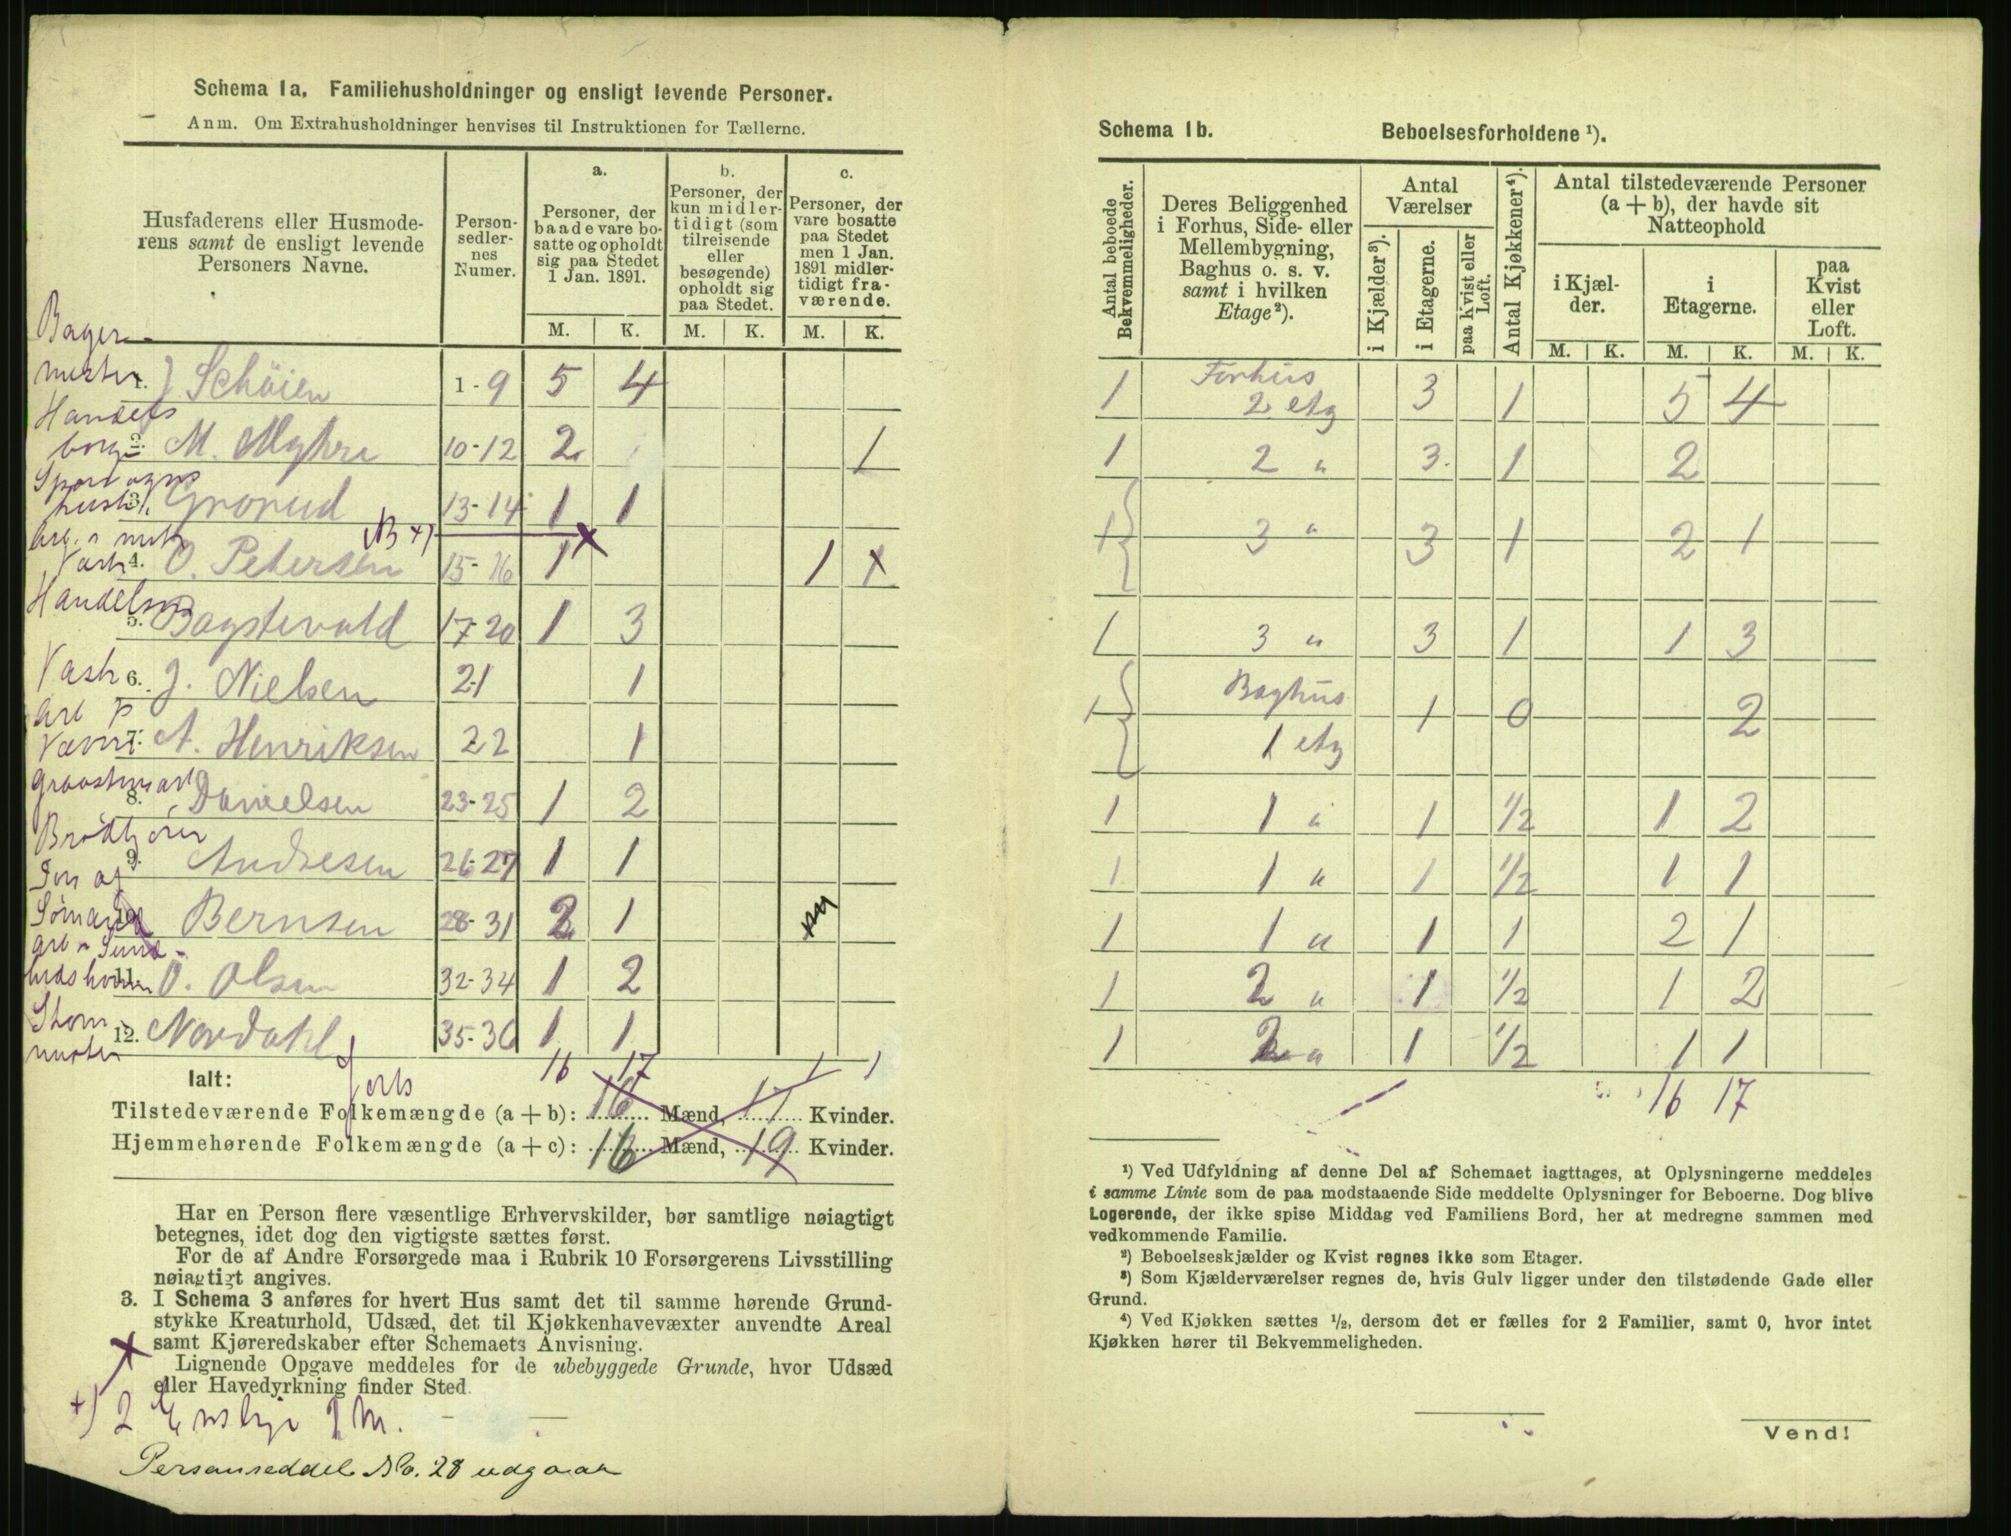 Schema 1a. Familiehusholdninger og ensligt levende Personer.
Anm. Om Extrahusholdninger henvises til Instruktionen for Tællerne.
Husfaderens eller Husmoderens samt de ensligt levende Personers Navne.
Personsedlernes Numer.
a.
Personer, der baade vare bosatte og opholdt sig paa Stedet 1 Jan. 1891.
b.
Personer, der kun midlertidigt (som tilreisende eller besøgende) opholdt sig paa Stedet.
c.
Personer, der vare bosatte paa Stedet men 1 Jan. 1891 midlertidigt fraværende.
M. K. M. K. M. K.
Bager-
mester 1. J Schöien 1-9 5 4
Handels
borg 2. M. Myhre 10-12 2 1
3. Grorud 13-14 1 1
4. O. Petersen 15-16 1 1 1
Handelsm
5. Bagstevold 17-20 1 3
Vask 6. J. Nielsen 21 1
7. A. Henriksen 22 1
8. Danielsen 23-25 1 2
Brödkjörer
9. Andresen 26-27 1 1
Søn af
Sømand Bernsen 28-31 2 1
11. O. Olsen 32-34 1 2
12. Nordahl 35-36 1 1
16 17 1 1
Ialt:
Tilstedeværende Folkemængde (a+b): 16 Mænd, 17 Kvinder.
Hjemmehørende Folkemængde (a+c): 16 Mænd, 19 Kvinder.
Har en Person flere væsentlige Erhvervskilder, bør samtlige nøiagtigt
betegnes, idet dog den vigtigste sættes først.
For de af Andre Forsørgede maa i Rubrik 10 Forsørgerens Livsstilling
nøiagtigt angives.
3. I Schema 3 anføres for hvert Hus samt det til samme hørende Grund-
stykke Kreaturhold, Udsæd, det til Kjøkkenhavevæxter anvendte Areal
samt Kjøreredskaber efter Schemaets Anvisning.
Lignende Opgave meddeles for de ubebyggede Grunde, hvor Udsæd
eller Havedyrkning finder Sted.
+) 2 Enslige I M.
Personseddel No. 28 udgaaar
Schema 1b. Beboelsesforholdene ¹).
Antal beboede Bekvemmeligheder.
Deres Beliggenhed i Forhus, Side- eller Mellembygning, Baghus o. s. v. samt i hvilken Etage ²).
Antal Værelser
i Kjælder ³).
i Etagerne.
paa Kvist eller Loft.
Antal Kjøkkener ⁴).
Antal tilstedeværende Personer (a + b), der havde sit Natteophold
i Kjælder.
i Etagerne.
paa Kvist eller Loft.
M. K. M. K. M. K.
1 Forhus 2 etg 3 1 5 4
1 2 " 3 1 2
1 3 " 3 1 2 1
1 3 " 3 1 1 3
1 Baghus 1 etg 1 0 2
1 1 " 1 1/2 1 2
1 1 " 1 1/2 1 1
1 1 " 1 1 2 1
1 2 " 1 1/2 1 2
1 2 " 1 1/2 1 1
16 17
¹) Ved Udfyldning af denne Del af Schemaet iagttages, at Oplysningerne meddeles
i samme Linie som de paa modstaaende Side meddelte Oplysninger for Beboerne. Dog blive
Logerende, der ikke spise Middag ved Familiens Bord, her at medregne sammen med
vedkommende Familie.
²) Beboelseskjælder og Kvist regnes ikke som Etager.
³) Som Kjælderværelser regnes de, hvis Gulv ligger under den tilstødende Gade eller
Grund.
⁴) Ved Kjøkken sættes 1/2, dersom det er fælles for 2 Familier, samt 0, hvor intet
Kjøkken hører til Bekvemmeligheden.
Vend!